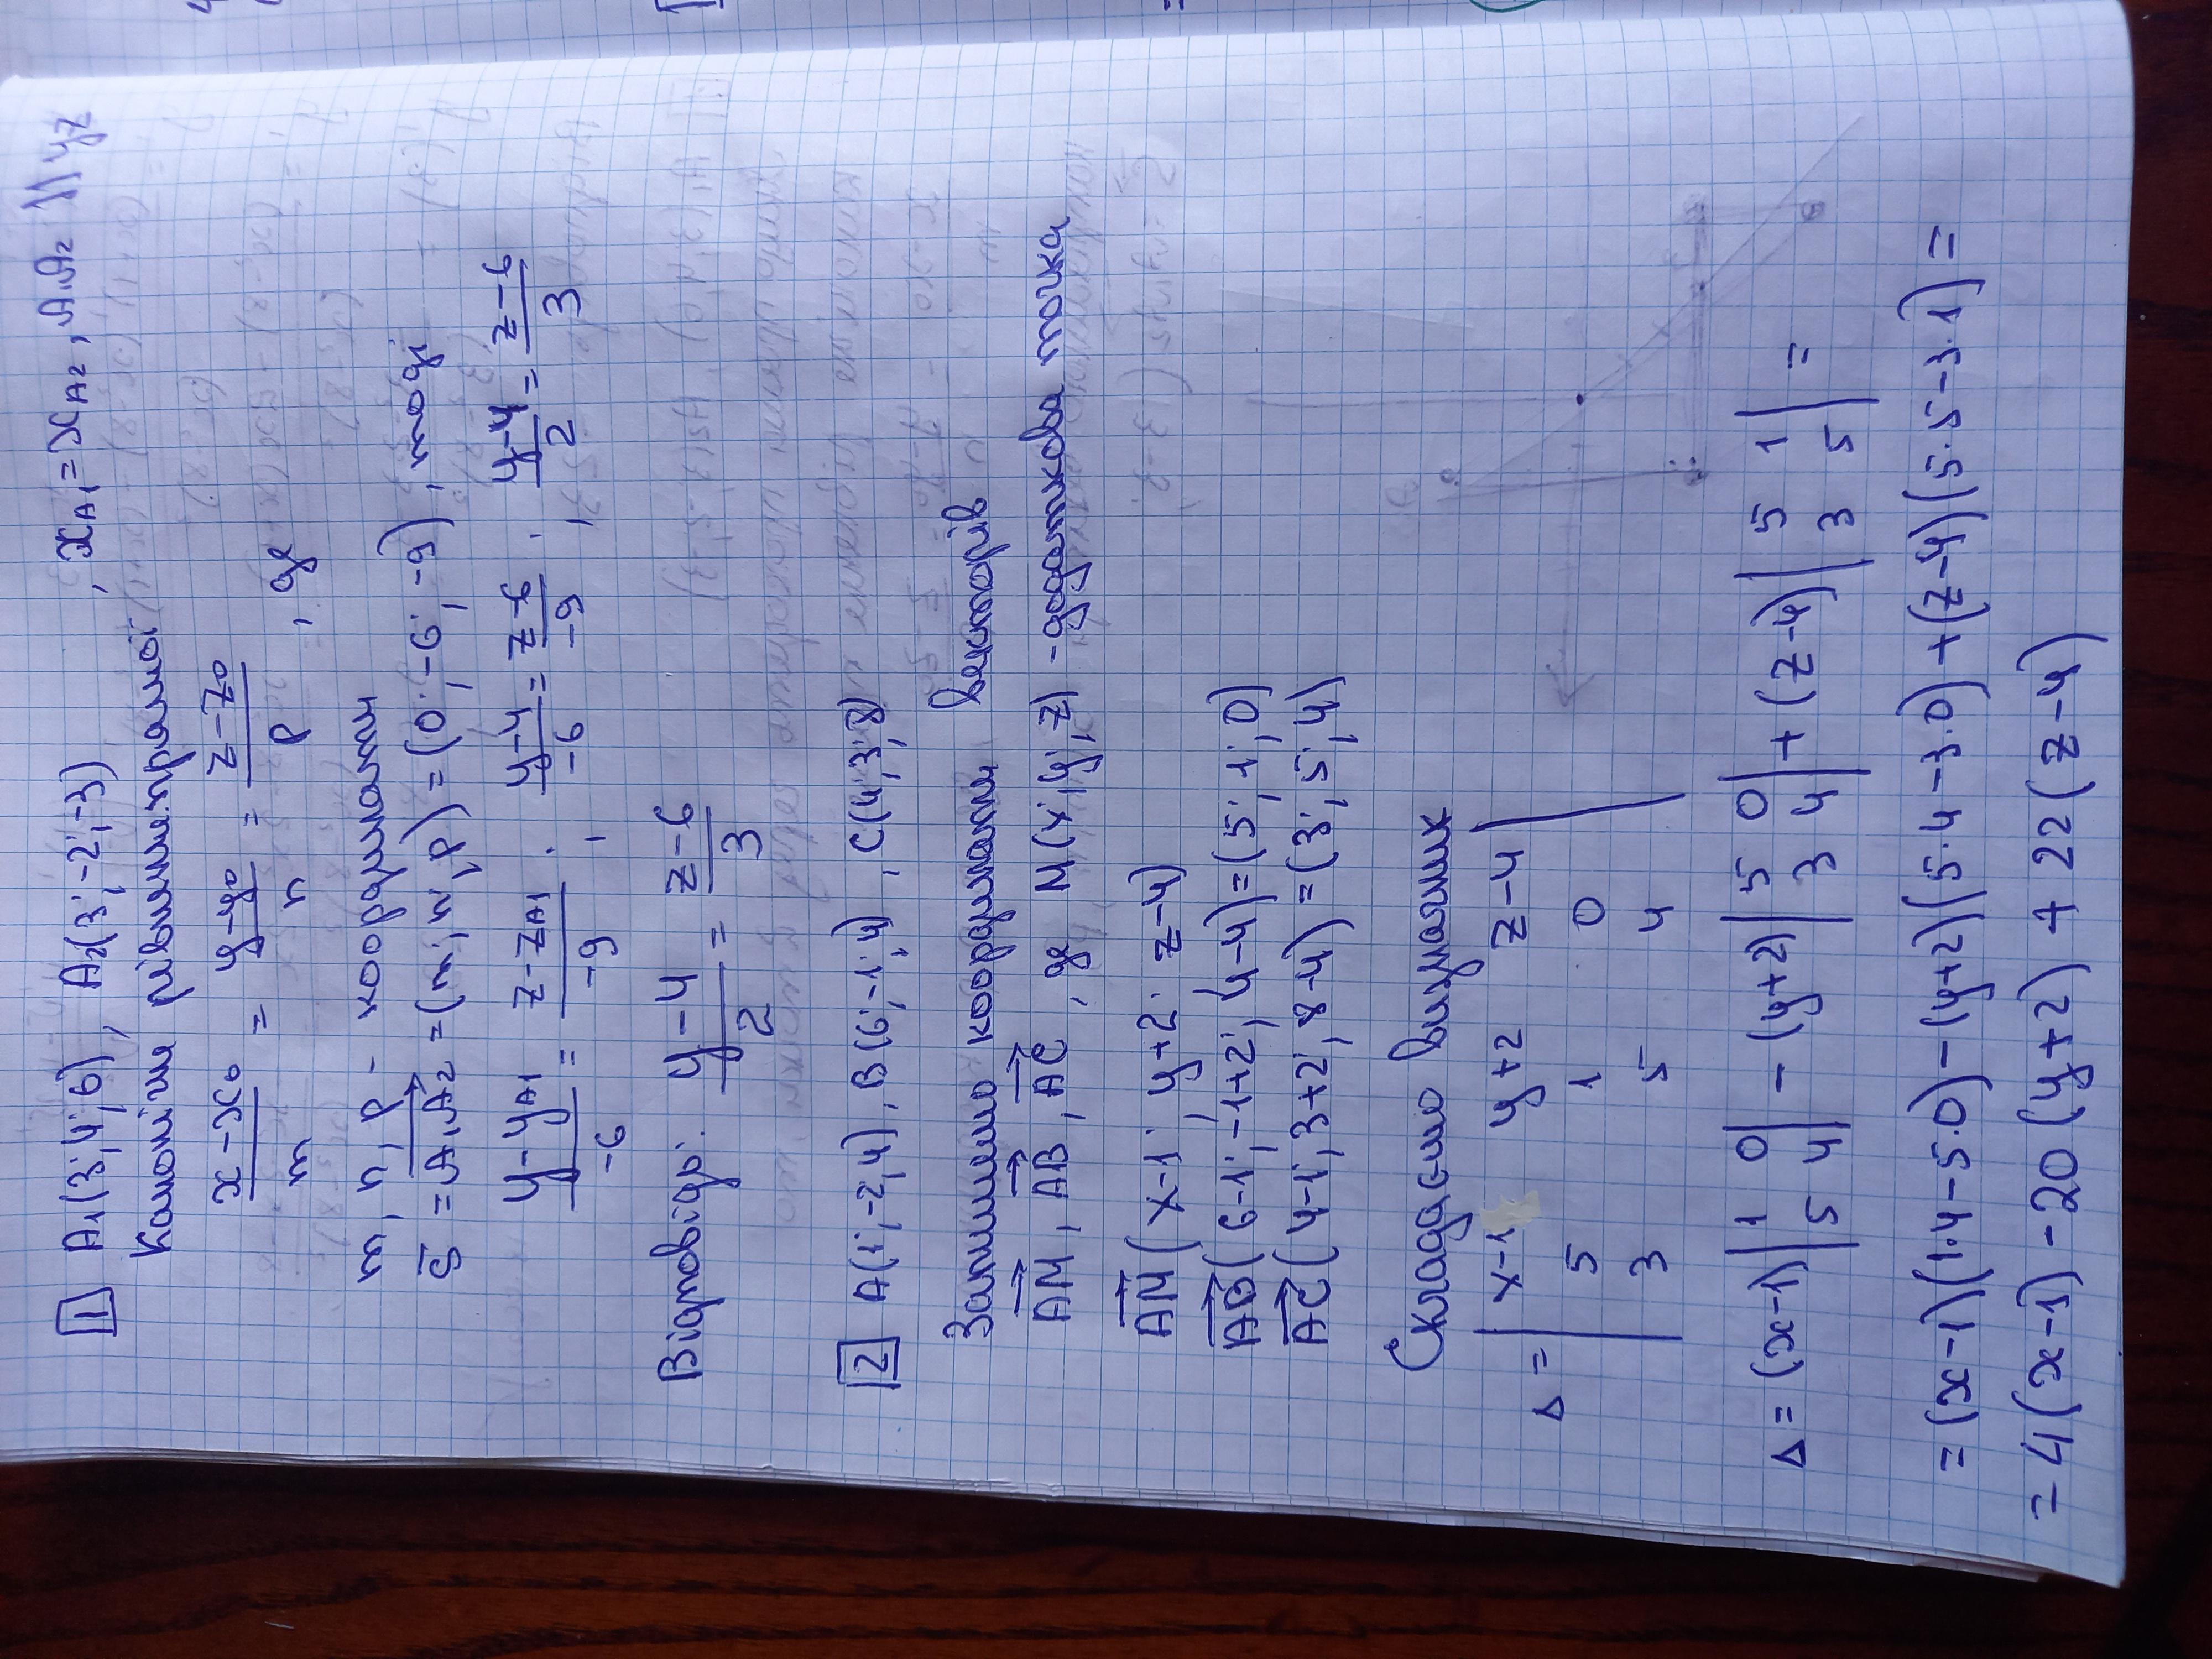 1 A₁(3; 4; 6), A₂(3; -2; -3), x_A₁ = x_A₂, A₁A₂ || yz
Канонічне рівняння прямої
(x-x₀)/m = (y-y₀)/n = (z-z₀)/p, де
m, n, p - координати
s̄ = A₁A₂ = (m; n; p) = (0; -6; -9), тоді
(y-y_A₁)/-6 = (z-z_A₁)/-9; (y-4)/-6 = (z-6)/-9; (y-4)/2 = (z-6)/3
Відповідь: (y-4)/2 = (z-6)/3
2 A(1; -2; 4), B(6; -1; 4), C(4; 3; 8)
Запишемо координати векторів
AM, AB, AC, де M(x; y; z) - додаткова точка
AM (x-1; y+2; z-4)
AB (6-1; -1+2; 4-4) = (5; 1; 0)
AC (4-1; 3+2; 8-4) = (3; 5; 4)
Складаємо визначник
Δ = | x-1 y+2 z-4 |
5 1 0
3 5 4
Δ = (x-1) |1 0; 5 4| - (y+2) |5 0; 3 4| + (z-4) |5 1; 3 5| =
= (x-1)(1·4-5·0) - (y+2)(5·4-3·0) + (z-4)(5·5-3·1) =
= 4(x-1) - 20(y+2) + 22(z-4)